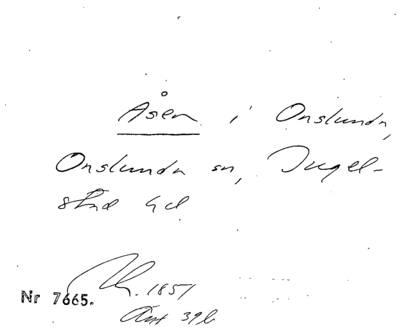 Åsen i Onslunda,
Onslunda sn, Ingel-
stad hd
Nr 7665.
1851
39 b